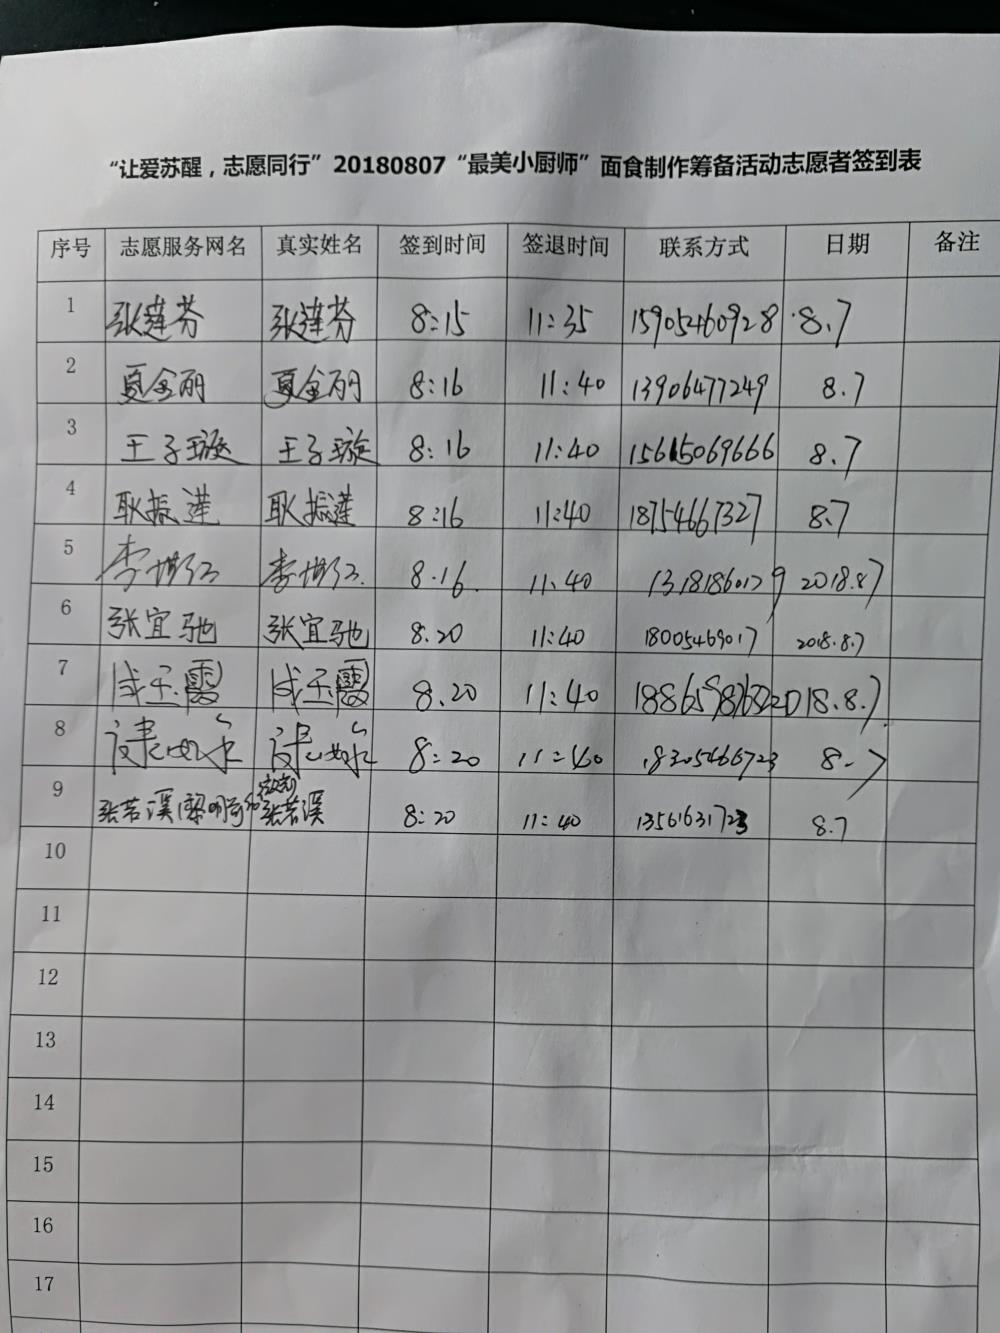 “让爱苏醒，志愿同行”20180807“最美小厨师”面食制作筹备活动志愿者签到表
序号 志愿服务网名 真实姓名 签到时间 签退时间 联系方式 日期 备注
1 张莲芬 张莲芬 8:15 11:35 15905460928 8.7
2 夏金丽 夏金丽 8:16 11:40 13906477249 8.7
3 王子璇 王子璇 8:16 11:40 15615069666 8.7
4 耿振莲 耿振莲 8:16 11:40 18754667327 8.7
5 李 李 8.16 11:40 13181860179 2018.8.7
6 张宜驰 张宜驰 8.20 11:40 18005469017 2018.8.7
7 成玉霞 成玉霞 8.20 11:40 2018.8.7
8 8:20 11:40 18305466723 8.7
9 张若溪 张若溪 8:20 11:40 13561631723 8.7
10
11
12
13
14
15
16
17